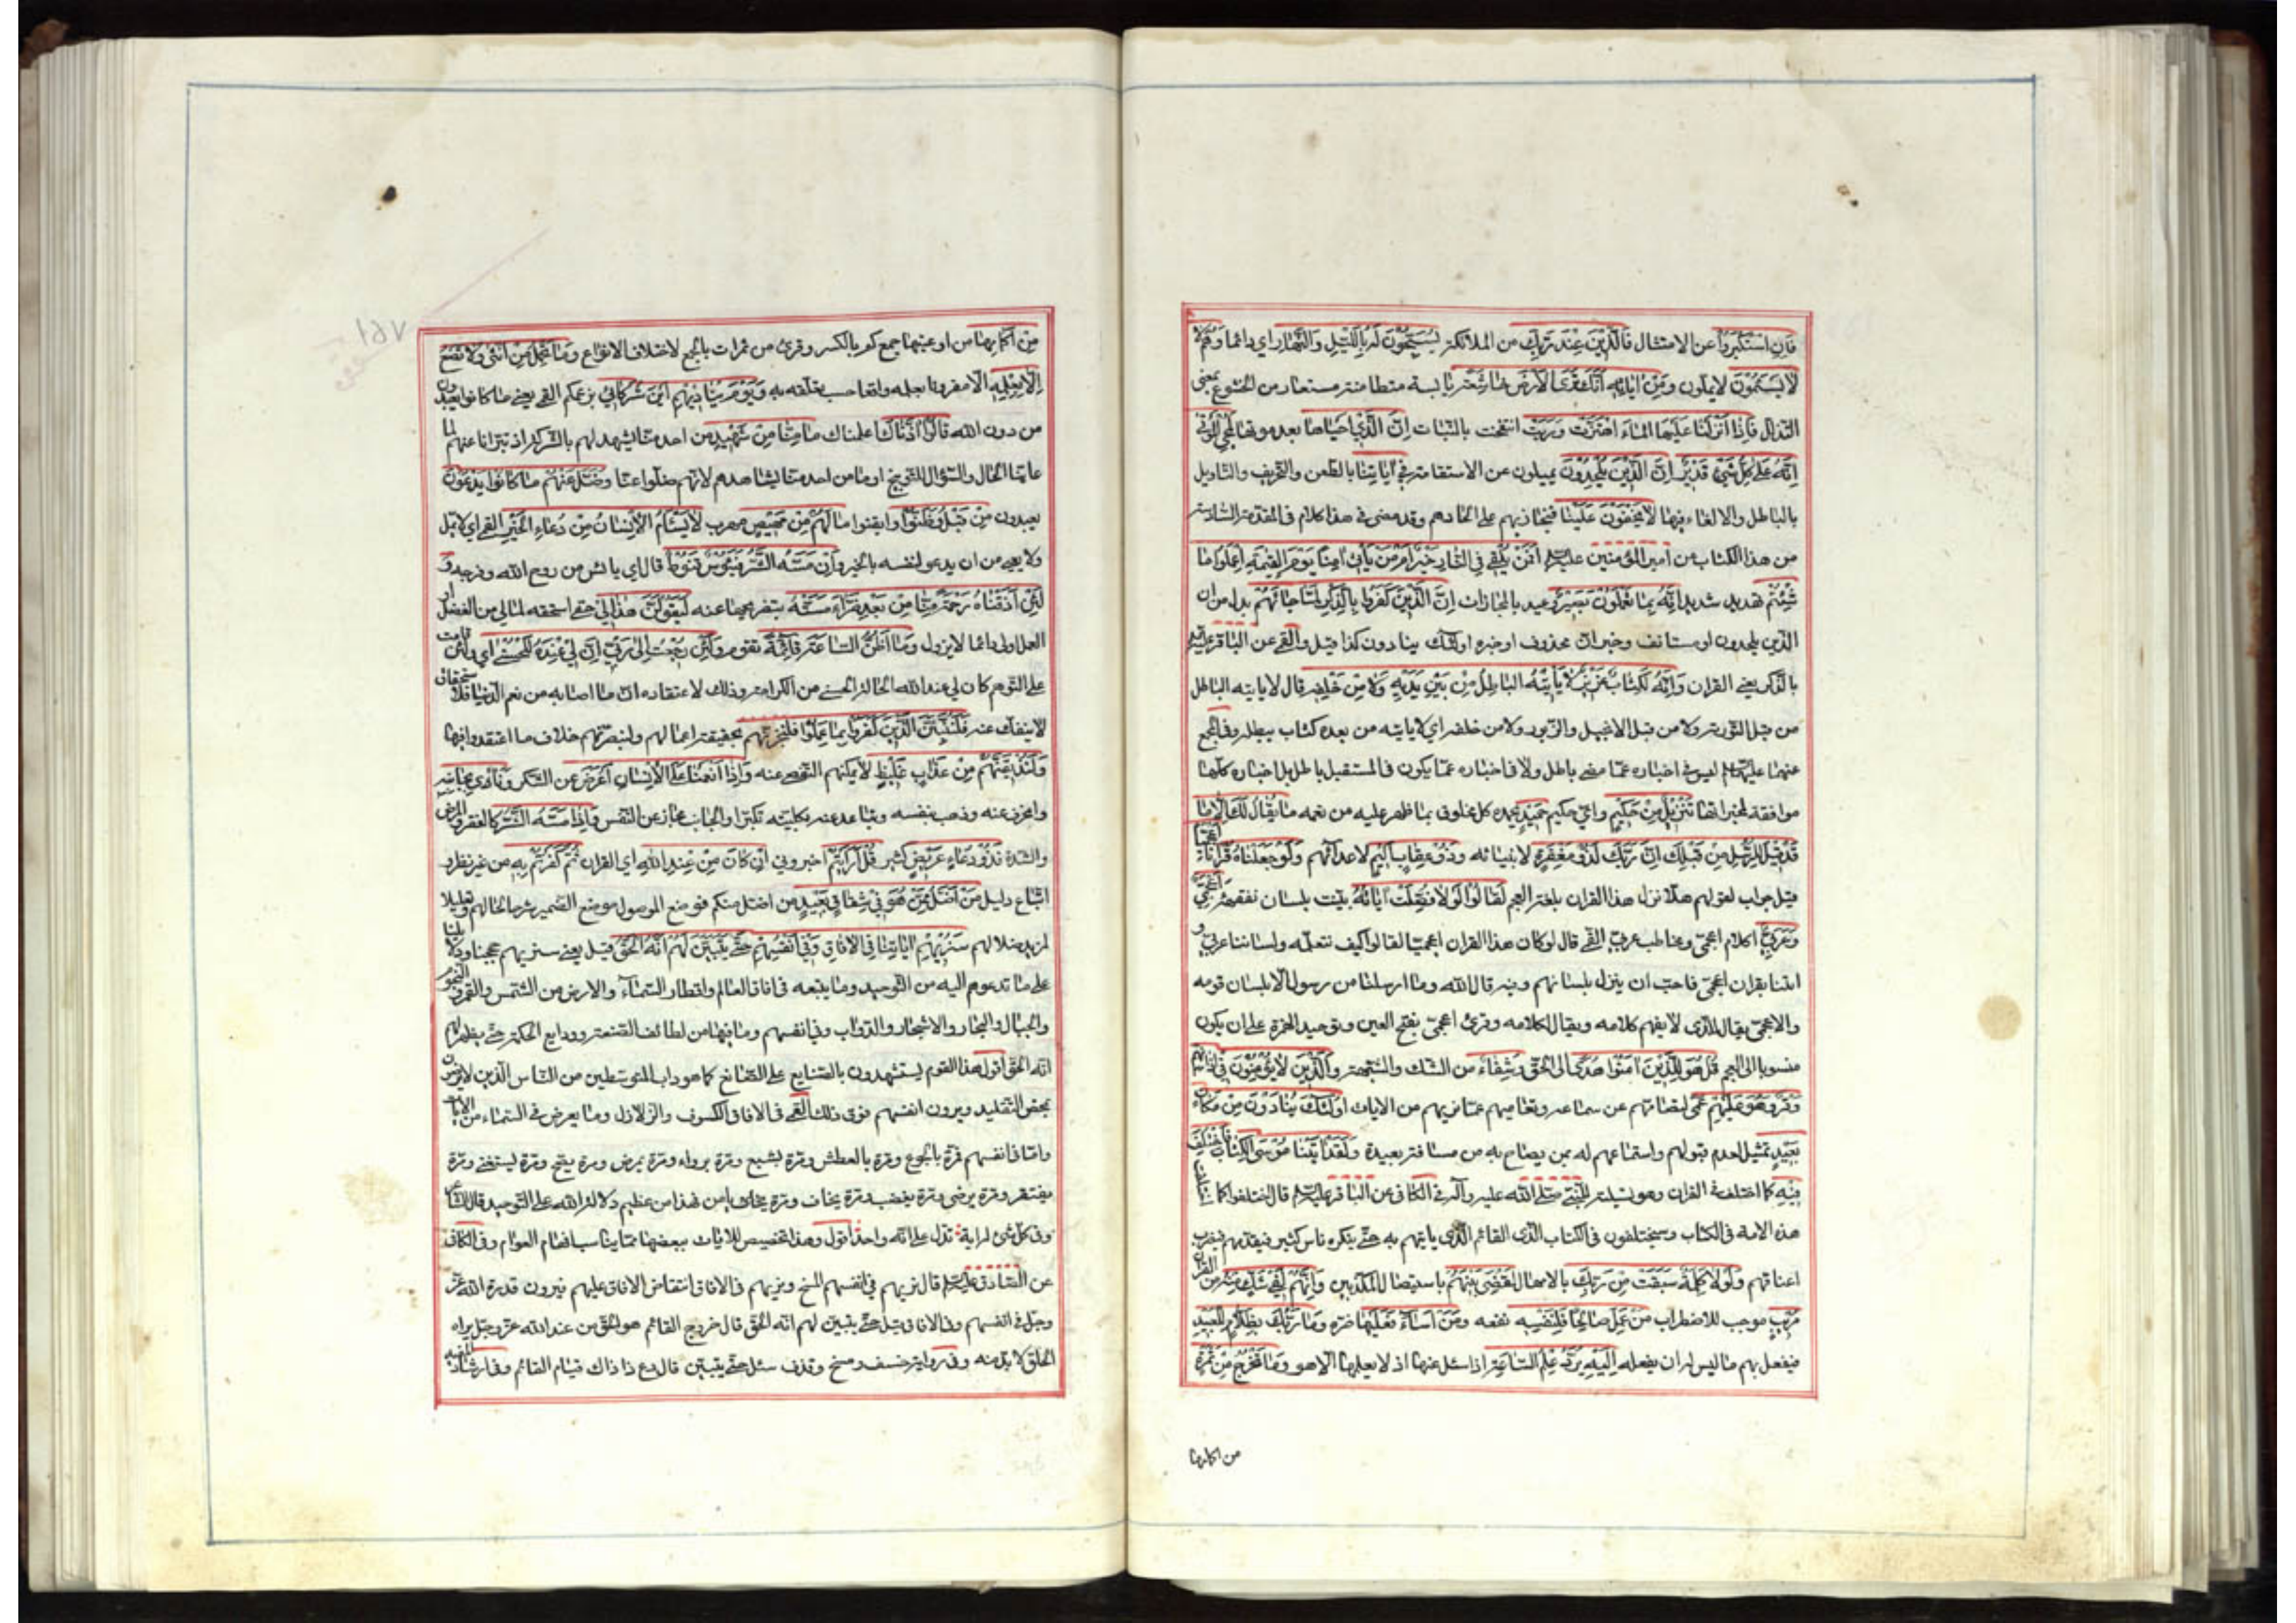 فَاِنِ اسْتَكْبَرُوا عن الامتثال فَالَّذِينَ عِنْدَ رَبِّكَ من الملائكة يُسَبِّحُونَ لَهُ بِاللَّيْلِ وَالنَّهَارِ اي دائما وَهُمْ
لا يَسْئَمُونَ لا يملون وَمِنْ اٰيَاتِهِ اَنَّكَ تَرَى الْاَرْضَ خَاشِعَةً يابسة متطامنة مستعار من الخشوع بمعنى
التذلل فَاِذَا اَنْزَلْنَا عَلَيْهَا الْمَاءَ اهْتَزَّتْ وَرَبَتْ انتفخت بالنبات اِنَّ الَّذِي اَحْيَاهَا بعد موتها لَمُحْيِي الْمَوْتٰى
اِنَّهُ عَلٰى كُلِّ شَيْءٍ قَدِيرٌ اِنَّ الَّذِينَ يُلْحِدُونَ يميلون عن الاستقامة فِي اٰيَاتِنَا بالطعن والتحريف والتاويل
بالباطل والالغاء فيها لَا يَخْفَوْنَ عَلَيْنَا فنجازيهم على الحادهم وقد مضى في هذا كلام في المقدمة السادسة
من هذا الكتاب عن امير المؤمنين عليه السلم اَفَمَنْ يُلْقٰى فِي النَّارِ خَيْرٌ اَمْ مَنْ يَأْتِي اٰمِنًا يَوْمَ الْقِيٰمَةِ اِعْمَلُوا مَا
شِئْتُمْ تهديد شديد اِنَّهُ بِمَا تَعْمَلُونَ بَصِيرٌ وعيد بالمجازات اِنَّ الَّذِينَ كَفَرُوا بِالذِّكْرِ لَمَّا جَاءَهُمْ بدل من ان
الّذين يلحدون او مستانف وخبر انّ محذوف او خبره اولئك ينادون كذا قيل والقمي عن الباقر عليه السلم
بالذكر يعني القران وَاِنَّهُ لَكِتَابٌ عَزِيزٌ لَا يَأْتِيهِ الْبَاطِلُ مِنْ بَيْنِ يَدَيْهِ وَلَا مِنْ خَلْفِهِ قال لا ياتيه الباطل
من قبل التورية ولا من قبل الانجيل والزبور ولا من خلفه اي لا ياتيه من بعده كتاب يبطله وفي المجمع
عنهما عليهما السلم ليس في اخباره عمّا مضى باطل ولا في اخباره عمّا يكون في المستقبل باطل بل اخباره كلّها
موافقة لمخبراتها تَنْزِيلٌ مِنْ حَكِيمٍ واي حكيم حَمِيدٍ يحمده كل مخلوق بما ظهر عليه من نعمه مَا يُقَالُ لَكَ اِلَّا مَا
قَدْ قِيلَ لِلرُّسُلِ مِنْ قَبْلِكَ اِنَّ رَبَّكَ لَذُو مَغْفِرَةٍ لانبيائه وَذُو عِقَابٍ اَلِيمٍ لاعدائهم وَلَوْ جَعَلْنَاهُ قُرْاٰنًا اَعْجَمِيًّا
قيل جواب لقولهم هلّا نزل هذا القران بلغة العجم لَقَالُوا لَوْلَا فُصِّلَتْ اٰيَاتُهُ بيّنت بلسان نفقهه ءَاَعْجَمِيٌّ
وَعَرَبِيٌّ اكلام اعجميّ ومخاطب عربيّ القمي قال لو كان هذا القران اعجميّا لقالوا كيف نتعلّمه ولساننا عربيّ و
اتيتنا بقران اعجميّ فاحبّ ان ينزل بلسانهم وفيه قال الله وما ارسلنا من رسول الّا بلسان قومه
والاعجميّ يقال للّذي لا يفهم كلامه ويقال لكلامه وقرئ اعجميّ بفتح العين وتوحيد الهمزة على ان يكون
منسوبا الى العجم قُلْ هُوَ لِلَّذِينَ اٰمَنُوا هُدًى الى الحقّ وَشِفَاءٌ من الشك والشبهة وَالَّذِينَ لَا يُؤْمِنُونَ فِي اٰذَانِهِمْ
وَقْرٌ وَهُوَ عَلَيْهِمْ عَمًى لتصامّهم عن سماعه وتعاميهم عمّا يريهم من الايات اُولٰئِكَ يُنَادَوْنَ مِنْ مَكَانٍ
بَعِيدٍ تمثيل لعدم قبولهم واستماعهم له بمن يصاح به من مسافة بعيدة وَلَقَدْ اٰتَيْنَا مُوسَى الْكِتَابَ فَاخْتُلِفَ
فِيهِ كما اختلف في القران وهو تسلية للنبيّ صلى الله عليه وآله في الكافي عن الباقر عليه السلم قال اختلفوا كما اختلفت
هذه الامة في الكتاب وسيختلفون في الكتاب الّذي القائم الّذي ياتيهم به حتّى ينكره ناس كثير فيقدّمهم فيضرب
اعناقهم وَلَوْلَا كَلِمَةٌ سَبَقَتْ مِنْ رَبِّكَ بالامهال لَقُضِيَ بَيْنَهُمْ باستيصال المكذّبين وَاِنَّهُمْ لَفِي شَكٍّ مِنْهُ من القران
مُرِيبٍ موجب للاضطراب مَنْ عَمِلَ صَالِحًا فَلِنَفْسِهِ نفعه وَمَنْ اَسَاءَ فَعَلَيْهَا ضرّه وَمَا رَبُّكَ بِظَلَّامٍ لِلْعَبِيدِ
فيفعل بهم ما ليس له ان يفعله اِلَيْهِ يُرَدُّ عِلْمُ السَّاعَةِ اذا سئل عنها اذ لا يعلمها الا هو وَمَا تَخْرُجُ مِنْ ثَمَرَةٍ
من اكمامها
مِنْ اَكْمَامِهَا من اوعيتها جمع كم بالكسر وقرئ من ثمرات بالجمع لاختلاف الانواع وَمَا تَحْمِلُ مِنْ اُنْثٰى وَلَا تَضَعُ
اِلَّا بِعِلْمِهِ الّا مقرونا بعلمه واقعا حسب تعلّقه به وَيَوْمَ يُنَادِيهِمْ اَيْنَ شُرَكَائِي بزعمكم القمي يعني ما كانوا يعبدون
من دون الله قَالُوا اٰذَنَّاكَ اعلمناك مَا مِنَّا مِنْ شَهِيدٍ من احد منّا يشهد لهم بالشركة اذ تبرّانا عنهم لما
عاينّا الحال والسّؤال للتوبيخ او ما من احد منّا يشاهدهم لانّهم ضلّوا عنّا وَضَلَّ عَنْهُمْ مَا كَانُوا يَدْعُونَ
يعبدون مِنْ قَبْلُ وَظَنُّوا وايقنوا مَا لَهُمْ مِنْ مَحِيصٍ مهرب لَا يَسْأَمُ الْاِنْسَانُ مِنْ دُعَاءِ الْخَيْرِ القمي اي لا يملّ
ولا يعيى من ان يدعو لنفسه بالخير وَاِنْ مَسَّهُ الشَّرُّ فَيَؤُسٌ قَنُوطٌ قال اي يائس من روح الله وفرجه وَ
لَئِنْ اَذَقْنَاهُ رَحْمَةً مِنَّا مِنْ بَعْدِ ضَرَّاءَ مَسَّتْهُ بتفريجها عنه لَيَقُولَنَّ هٰذَا لِي حقّي استحقه لمالي من الفضل
او العمل او لي دائما لا يزول وَمَا اَظُنُّ السَّاعَةَ قَائِمَةً تقوم وَلَئِنْ رُجِعْتُ اِلٰى رَبِّي اِنَّ لِي عِنْدَهُ لَلْحُسْنٰى اي ولئن قامت
على التوهم كان لي عند الله الحالة الحسنى من الكرامة وذلك لاعتقاده انّ ما اصابه من نعم الدّنيا فلاستحقاق
لا ينفك عنه فَلَنُنَبِّئَنَّ الَّذِينَ كَفَرُوا بِمَا عَمِلُوا فلنخبرنّهم بحقيقة اعمالهم ولنبصّرنّهم خلاف ما اعتقدوا فيها
وَلَنُذِيقَنَّهُمْ مِنْ عَذَابٍ غَلِيظٍ لا يمكنهم التقصي عنه وَاِذَا اَنْعَمْنَا عَلَى الْاِنْسَانِ اَعْرَضَ عن الشكر وَنَأٰى بِجَانِبِهِ
وانحرف عنه وذهب بنفسه وتباعد عنه بكليته تكبّرا والجانب مجاز عن النّفس وَاِذَا مَسَّهُ الشَّرُّ كالفقر والمرض
والشدة فَذُو دُعَاءٍ عَرِيضٍ كثير قُلْ اَرَاَيْتُمْ اخبروني اِنْ كَانَ مِنْ عِنْدِ اللّٰهِ اي القران ثُمَّ كَفَرْتُمْ بِهِ من غير نظر و
اتّباع دليل مَنْ اَضَلُّ مِمَّنْ هُوَ فِي شِقَاقٍ بَعِيدٍ من اضلّ منكم فوضع الموصول موضع الضمير شرحا لحالهم وتعليلا
لمزيد ضلالهم سَنُرِيهِمْ اٰيَاتِنَا فِي الْاٰفَاقِ وَفِي اَنْفُسِهِمْ حَتّٰى يَتَبَيَّنَ لَهُمْ اَنَّهُ الْحَقُّ قيل يعني سنريهم حججنا ودلائلنا
على ما تدعوهم اليه من التّوحيد وما يتبعه في افاق العالم واقطار السّماء والارض من الشّمس والقمر والنجوم
والجبال والبحار والاشجار والدّواب وفي انفسهم وما فيها من لطائف الصّنعة وودايع الحكمة حتّى يظهر لهم
انّه الحقّ اقول هذا القوم يستشهدون بالصّنايع على الصّانع كما هو داب المتوسّطين من النّاس الّذين لا يرضون
بمحض التقليد ويرون انفسهم فوق ذلك القمي في الافاق الكسوف والزلازل وما يعرض في السّماء من الايات
وامّا في انفسهم فمرّة بالجوع ومرّة بالعطش ومرّة يشبع ومرّة يرواء ومرّة يمرض ومرة يصح ومرّة يستغنى ومرّة
يفتقر ومرّة يرضى ومرّة يغضب ومرّة يخاف ومرّة يامن فهذا من عظيم دلالة الله على التّوحيد قال الشاعر
وفي كلّ شئ له اية تدلّ على انّه واحد اقول وهذا تخصيص للايات ببعضها ممّا يناسب افهام العوام وفي الكافي
عن الصّادق عليه السلم قال نريهم في انفسهم المسخ ونريهم في الافاق انتقاض الافاق عليهم فيرون قدرة الله عزّ
وجلّ في انفسهم وفي الافاق قيل حتّى يتبيّن لهم انّه الحقّ قال خروج القائم هو الحقّ من عند الله عزّ وجلّ يراه
الخلق لا بدّ منه وفي رواية خسف ومسخ وقذف سئل حتّى يتبيّن قال دع ذا ذاك قيام القائم وفي ارشاد المفيد